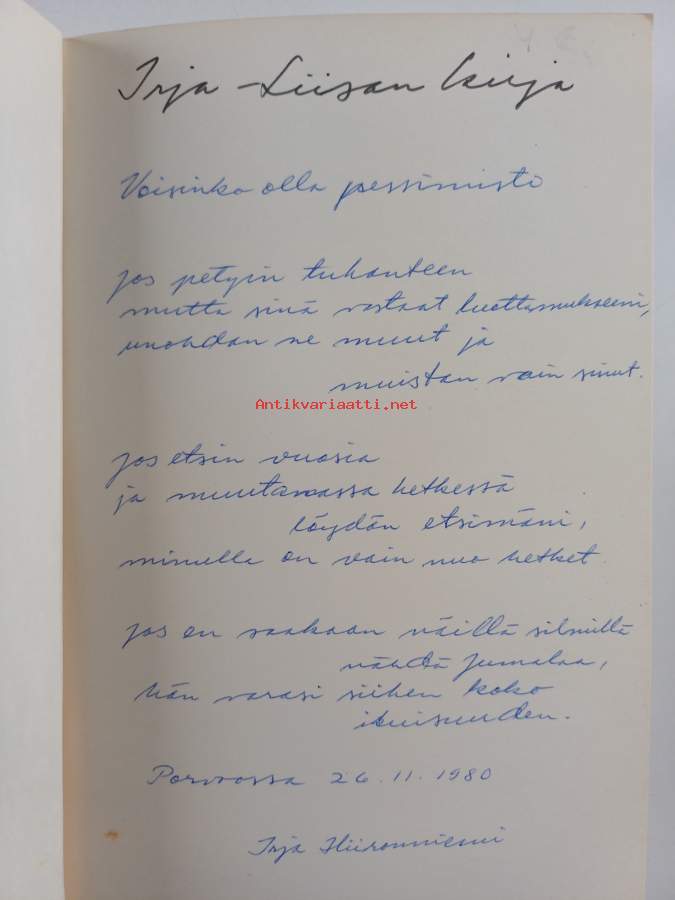 4 €
Irja-Liisan kirja
Voisinko olla pessimisti
jos petyin tuhanteen
mutta sinä vastaat luottamukseeni,
unohdan ne muut ja
muistan vain sinut.
Antikvariaatti.net
jos etsin vuosia
ja muutamassa hetkessä
löydän etsimäni,
minulla on vain nuo hetket
jos en saakaan näillä silmillä
nähdä Jumalaa,
hän varasi siihen koko
ikuisuuden.
Porvoossa 26.11.1980
Irja Hiironniemi